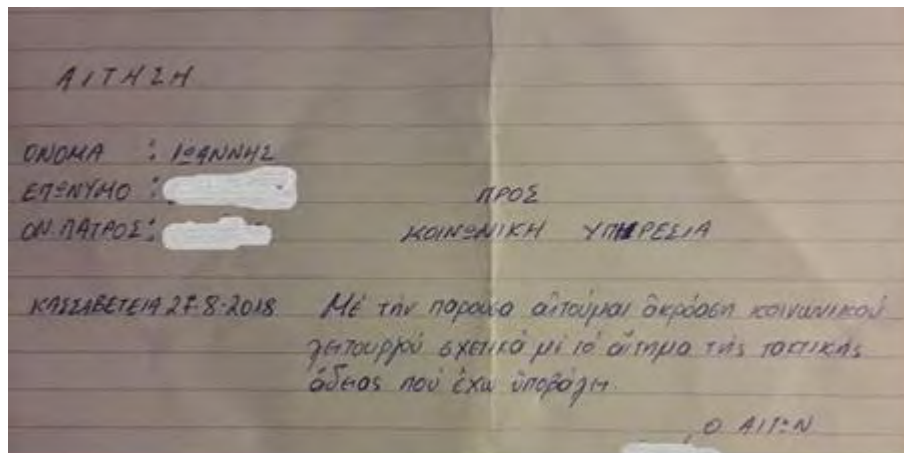 ΑΙΤΗΣΗ
ΟΝΟΜΑ : ΙΩΑΝΝΗΣ
ΕΠΩΝΥΜΟ :
ΠΡΟΣ
ΟΝ. ΠΑΤΡΟΣ:
ΚΟΙΝΩΝΙΚΗ ΥΠΗΡΕΣΙΑ
ΚΑΣΣΑΒΕΤΕΙΑ 27-8-2018 Μέ τήν παρούσα αἰτοῦμαι ἀκρόαση κοινωνικοῦ
λειτουργοῦ σχετικά μέ τό αἴτημα τῆς τακτικῆς
ἄδειας πού ἔχω ὑποβάλει
Ο ΑΙΤΩΝ